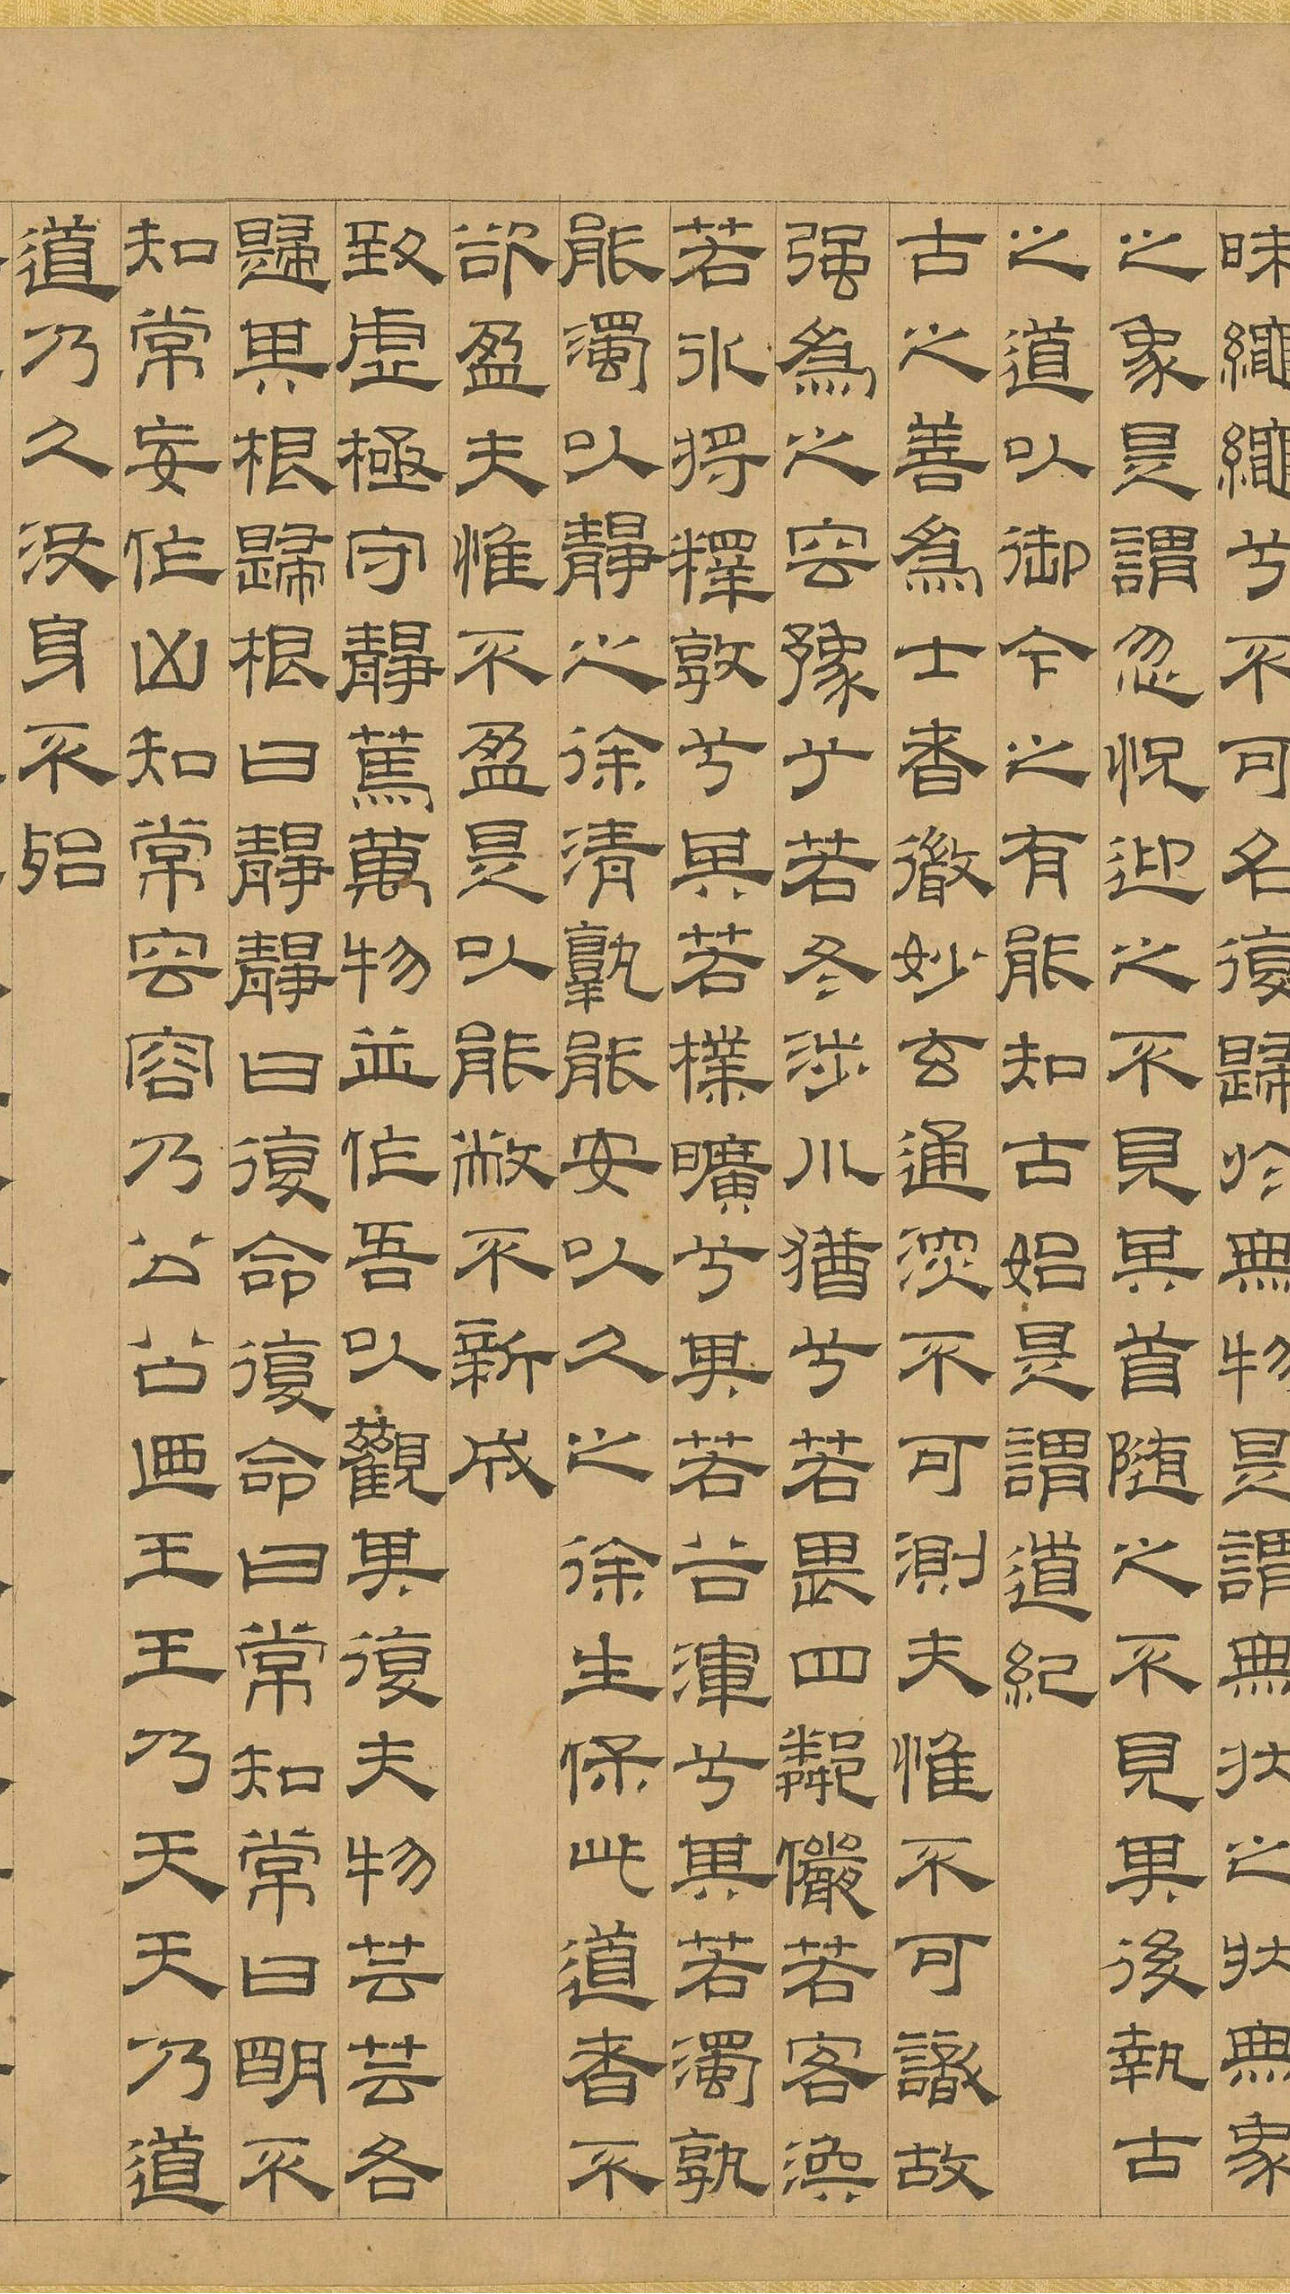 昧繩繩兮不可名復歸於無物是謂無狀之狀無象
之象是謂忽怳迎之不見其首隨之不見其後執古
之道以御今之有能知古始是謂道紀
古之善為士者微妙玄通深不可測夫惟不可識故
強為之容豫兮若冬涉川猶兮若畏四鄰儼若客渙
若冰將釋敦兮其若樸曠兮其若谷渾兮其若濁孰
能濁以靜之徐清孰能安以久之徐生保此道者不
欲盈夫惟不盈是以能敝不新成
致虛極守靜篤萬物並作吾以觀其復夫物芸芸各
歸其根歸根曰靜靜曰復命復命曰常知常曰明不
知常妄作凶知常容容乃公公乃王王乃天天乃道
道乃久沒身不殆